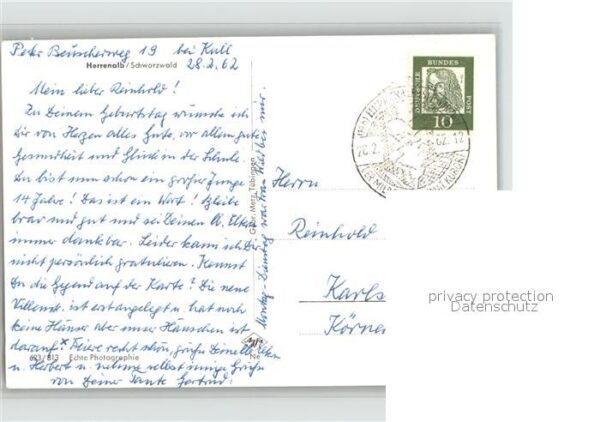 Peter Beuscherweg 19 bei Kull
Herrenalb / Schwarzwald
28.2.62
Mein lieber Reinhold!
Zu Deinem Geburtstag wünsche ich
Dir von Herzen alles Gute, vor allem gute
Gesundheit und Glück in der Schule.
Du bist nun schon ein großer Junge
14 Jahre! Das ist ein Wort! Bleibe
brav und gut und sei Deinen lb. Eltern
immer dankbar. Leider kann ich Dir
nicht persönlich gratulieren. Kennst
Du die Gegend auf der Karte? Die neue
Villenst. ist erst angelegt u. hat noch
keine Häuser aber unser Häuschen ist
darauf! x Feiere recht schön, grüße Deine lb. Eltern
u. Herbert u. nehme selbst innige Grüße
von Deiner Tante Gertrud.
623/813 Echte Photographie
Gebr. Metz, Tübingen
Montag - Dienstag war Frau hier.
DEUTSCHE BUNDES POST
10
28.2.62.12
Herrn
Reinhold
Karls
Körner
privacy protection
Datenschutz